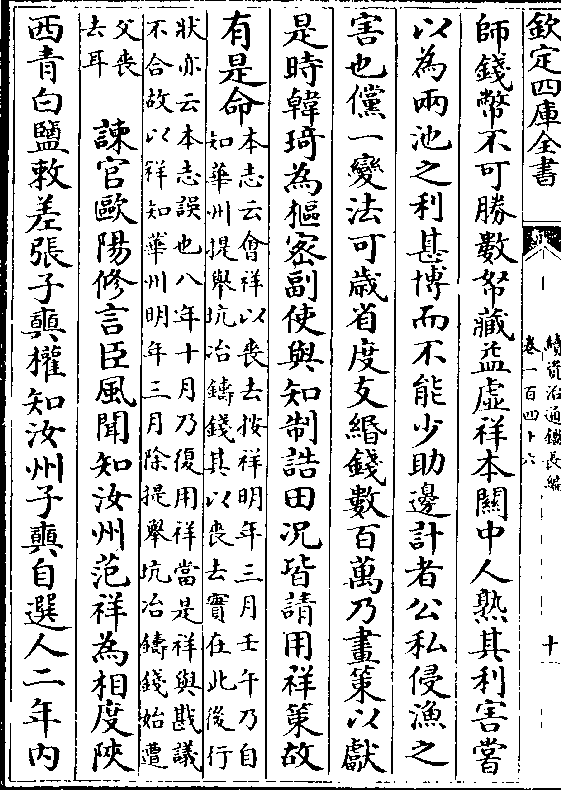 欽定四庫全書
續資治通鑑長編
卷一百四十六
十
師錢幣不可勝數帑藏益虛祥本關中人熟其利害嘗
以為兩池之利甚博而不能少助邊計者公私侵漁之
害也儻一變法可歲省度支緡錢數百萬乃畫策以獻
是時韓琦為樞宻副使與知制誥田况皆請用祥策故
有是命
本志云會祥以喪去按祥明年三月壬午乃自
知華州提舉坑冶鑄錢其以喪去實在此後行
狀亦云本志誤也八年十月乃復用祥當是祥與戡議
不合故以祥知華州明年三月除提舉坑冶鑄錢始遭
父喪
去耳
諫官歐陽修言臣風聞知汝州范祥為相度陜
西青白鹽敕差張子奭權知汝州子奭自選人二年内